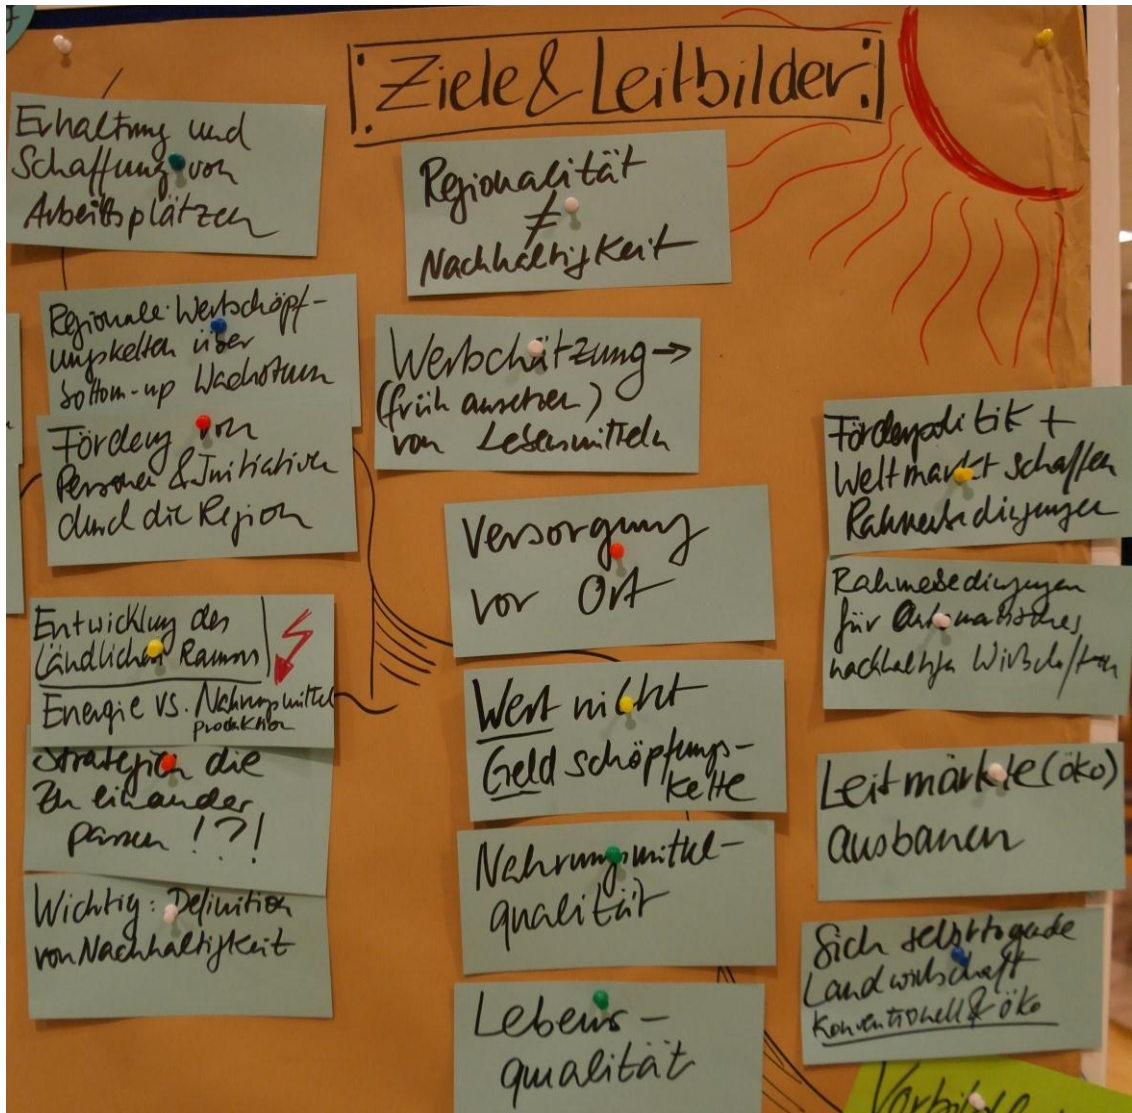 Ziele & Leitbilder
Erhaltung und
Schaffung von
Arbeitsplätzen
Regionale Wertschöpf-
ungsketten über
bottom-up Wachstum
Förderung von
Personen & Initiativen
durch die Region
Entwicklung des
Ländlichen Raums
Energie vs. Nahrungsmittel
produktion
Strategien die
Zu einander
passen !?!
Wichtig: Definition
von Nachhaltigkeit
Regionalität
≠
Nachhaltigkeit
Wertschätzung →
(früh ansetzen)
von Lebensmitteln
Versorgung
vor Ort
Wert nicht
Geld schöpfungs-
kette
Nahrungsmittel-
qualität
Lebens-
qualität
Förderpolitik +
Weltmarkt schaffen
Rahmenbedingungen
Rahmenbedingungen
für automatisches
nachhaltiges Wirtschaften
Leitmärkte (öko)
ausbauen
Sich selbsttragende
Landwirtschaft
Konventionell & öko